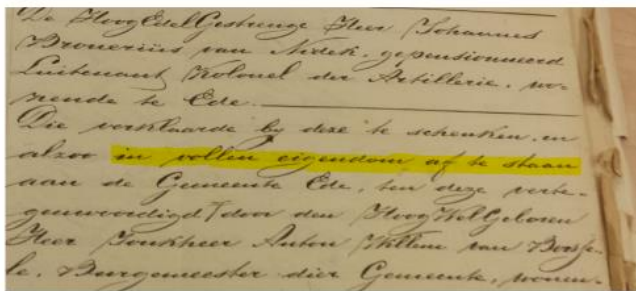 De HoogEdelGestrenge Heer Johannes
Brouerius van Nidek, gepensionneerd
Luitenant Kolonel der Artillerie, wo-
nende te Ede.
Die verklaarde by deze te schenken, en
alzoo in vollen eigendom af te staan
aan de Gemeente Ede, ten deze verte-
genwoordigd door den HoogWelGeboren
Heer Jonkheer Anton Willem van Borsse-
le, Burgemeester dier Gemeente, wonen-